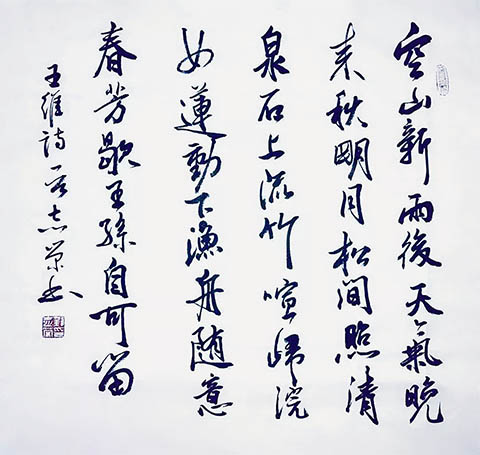 空山新雨後天氣晚
来秋明月松間照清
泉石上流竹喧歸浣
女蓮動下漁舟随意
春芳歇王孫自可留
王維詩志榮书